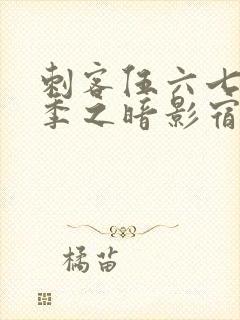 刺客伍六七
季之暗影宿
橘苗